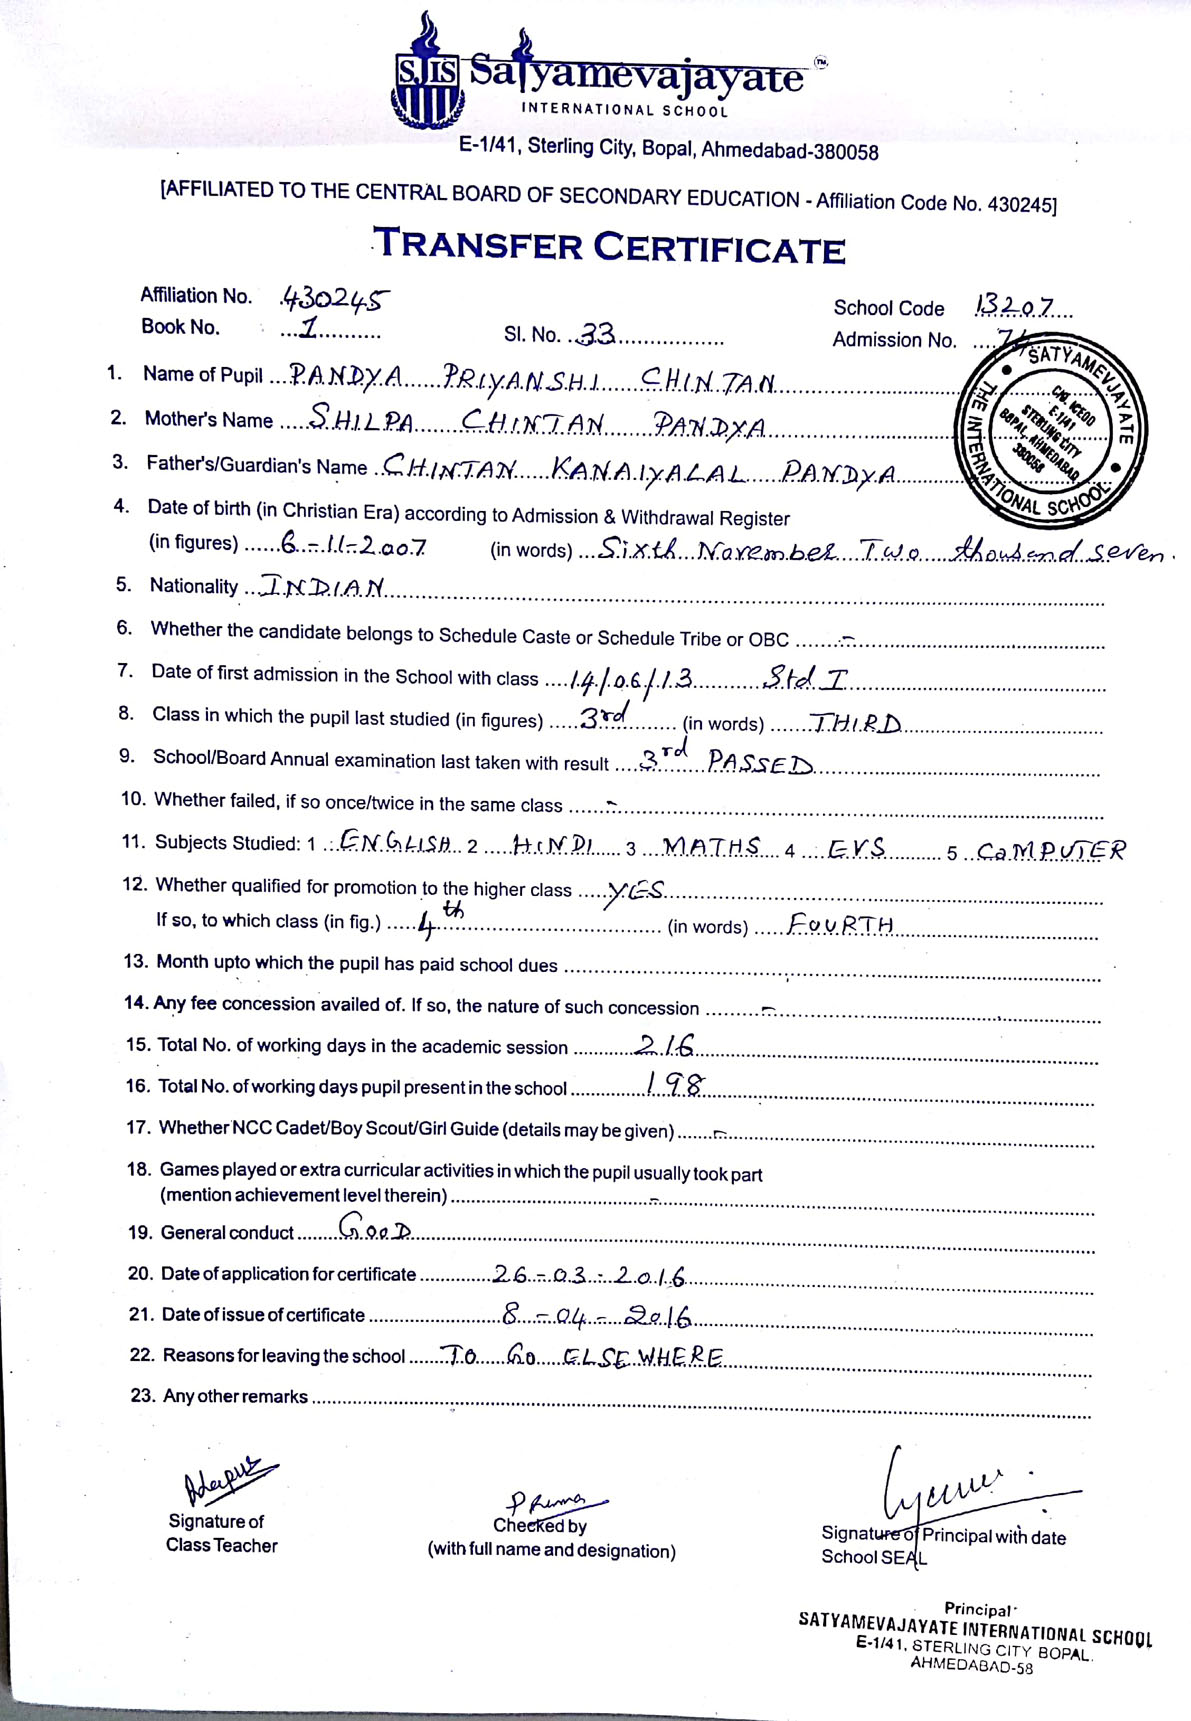 SJIS Satyamevajayate TM
INTERNATIONAL SCHOOL
E-1/41, Sterling City, Bopal, Ahmedabad-380058
[AFFILIATED TO THE CENTRAL BOARD OF SECONDARY EDUCATION - Affiliation Code No. 430245]
TRANSFER CERTIFICATE
Affiliation No. 430245 School Code 13207
Book No. 1 Sl. No. 33 Admission No.
1. Name of Pupil PANDYA PRIYANSHI CHINTAN
2. Mother's Name SHILPA CHINTAN PANDYA
3. Father's/Guardian's Name CHINTAN KANAIYALAL PANDYA
SATYAMEVJAYATE THE INTERNATIONAL SCHOOL
E-1/41
STERLING CITY
BOPAL, AHMEDABAD
380058
4. Date of birth (in Christian Era) according to Admission & Withdrawal Register
(in figures) 6-11-2007 (in words) Sixth November Two thousand seven.
5. Nationality INDIAN
6. Whether the candidate belongs to Schedule Caste or Schedule Tribe or OBC -
7. Date of first admission in the School with class 14/06/13 Std I
8. Class in which the pupil last studied (in figures) 3rd (in words) THIRD
9. School/Board Annual examination last taken with result 3rd PASSED
10. Whether failed, if so once/twice in the same class -
11. Subjects Studied: 1 ENGLISH 2 HINDI 3 MATHS 4 EVS 5 COMPUTER
12. Whether qualified for promotion to the higher class YES
If so, to which class (in fig.) 4th (in words) FOURTH
13. Month upto which the pupil has paid school dues
14. Any fee concession availed of. If so, the nature of such concession -
15. Total No. of working days in the academic session 216
16. Total No. of working days pupil present in the school 198
17. Whether NCC Cadet/Boy Scout/Girl Guide (details may be given) -
18. Games played or extra curricular activities in which the pupil usually took part
(mention achievement level therein) -
19. General conduct GOOD
20. Date of application for certificate 26-03-2016
21. Date of issue of certificate 8-04-2016
22. Reasons for leaving the school TO GO ELSEWHERE
23. Any other remarks
Signature of Checked by Signature of Principal with date
Class Teacher (with full name and designation) School SEAL
Principal
SATYAMEVAJAYATE INTERNATIONAL SCHOOL
E-1/41, STERLING CITY BOPAL.
AHMEDABAD-58